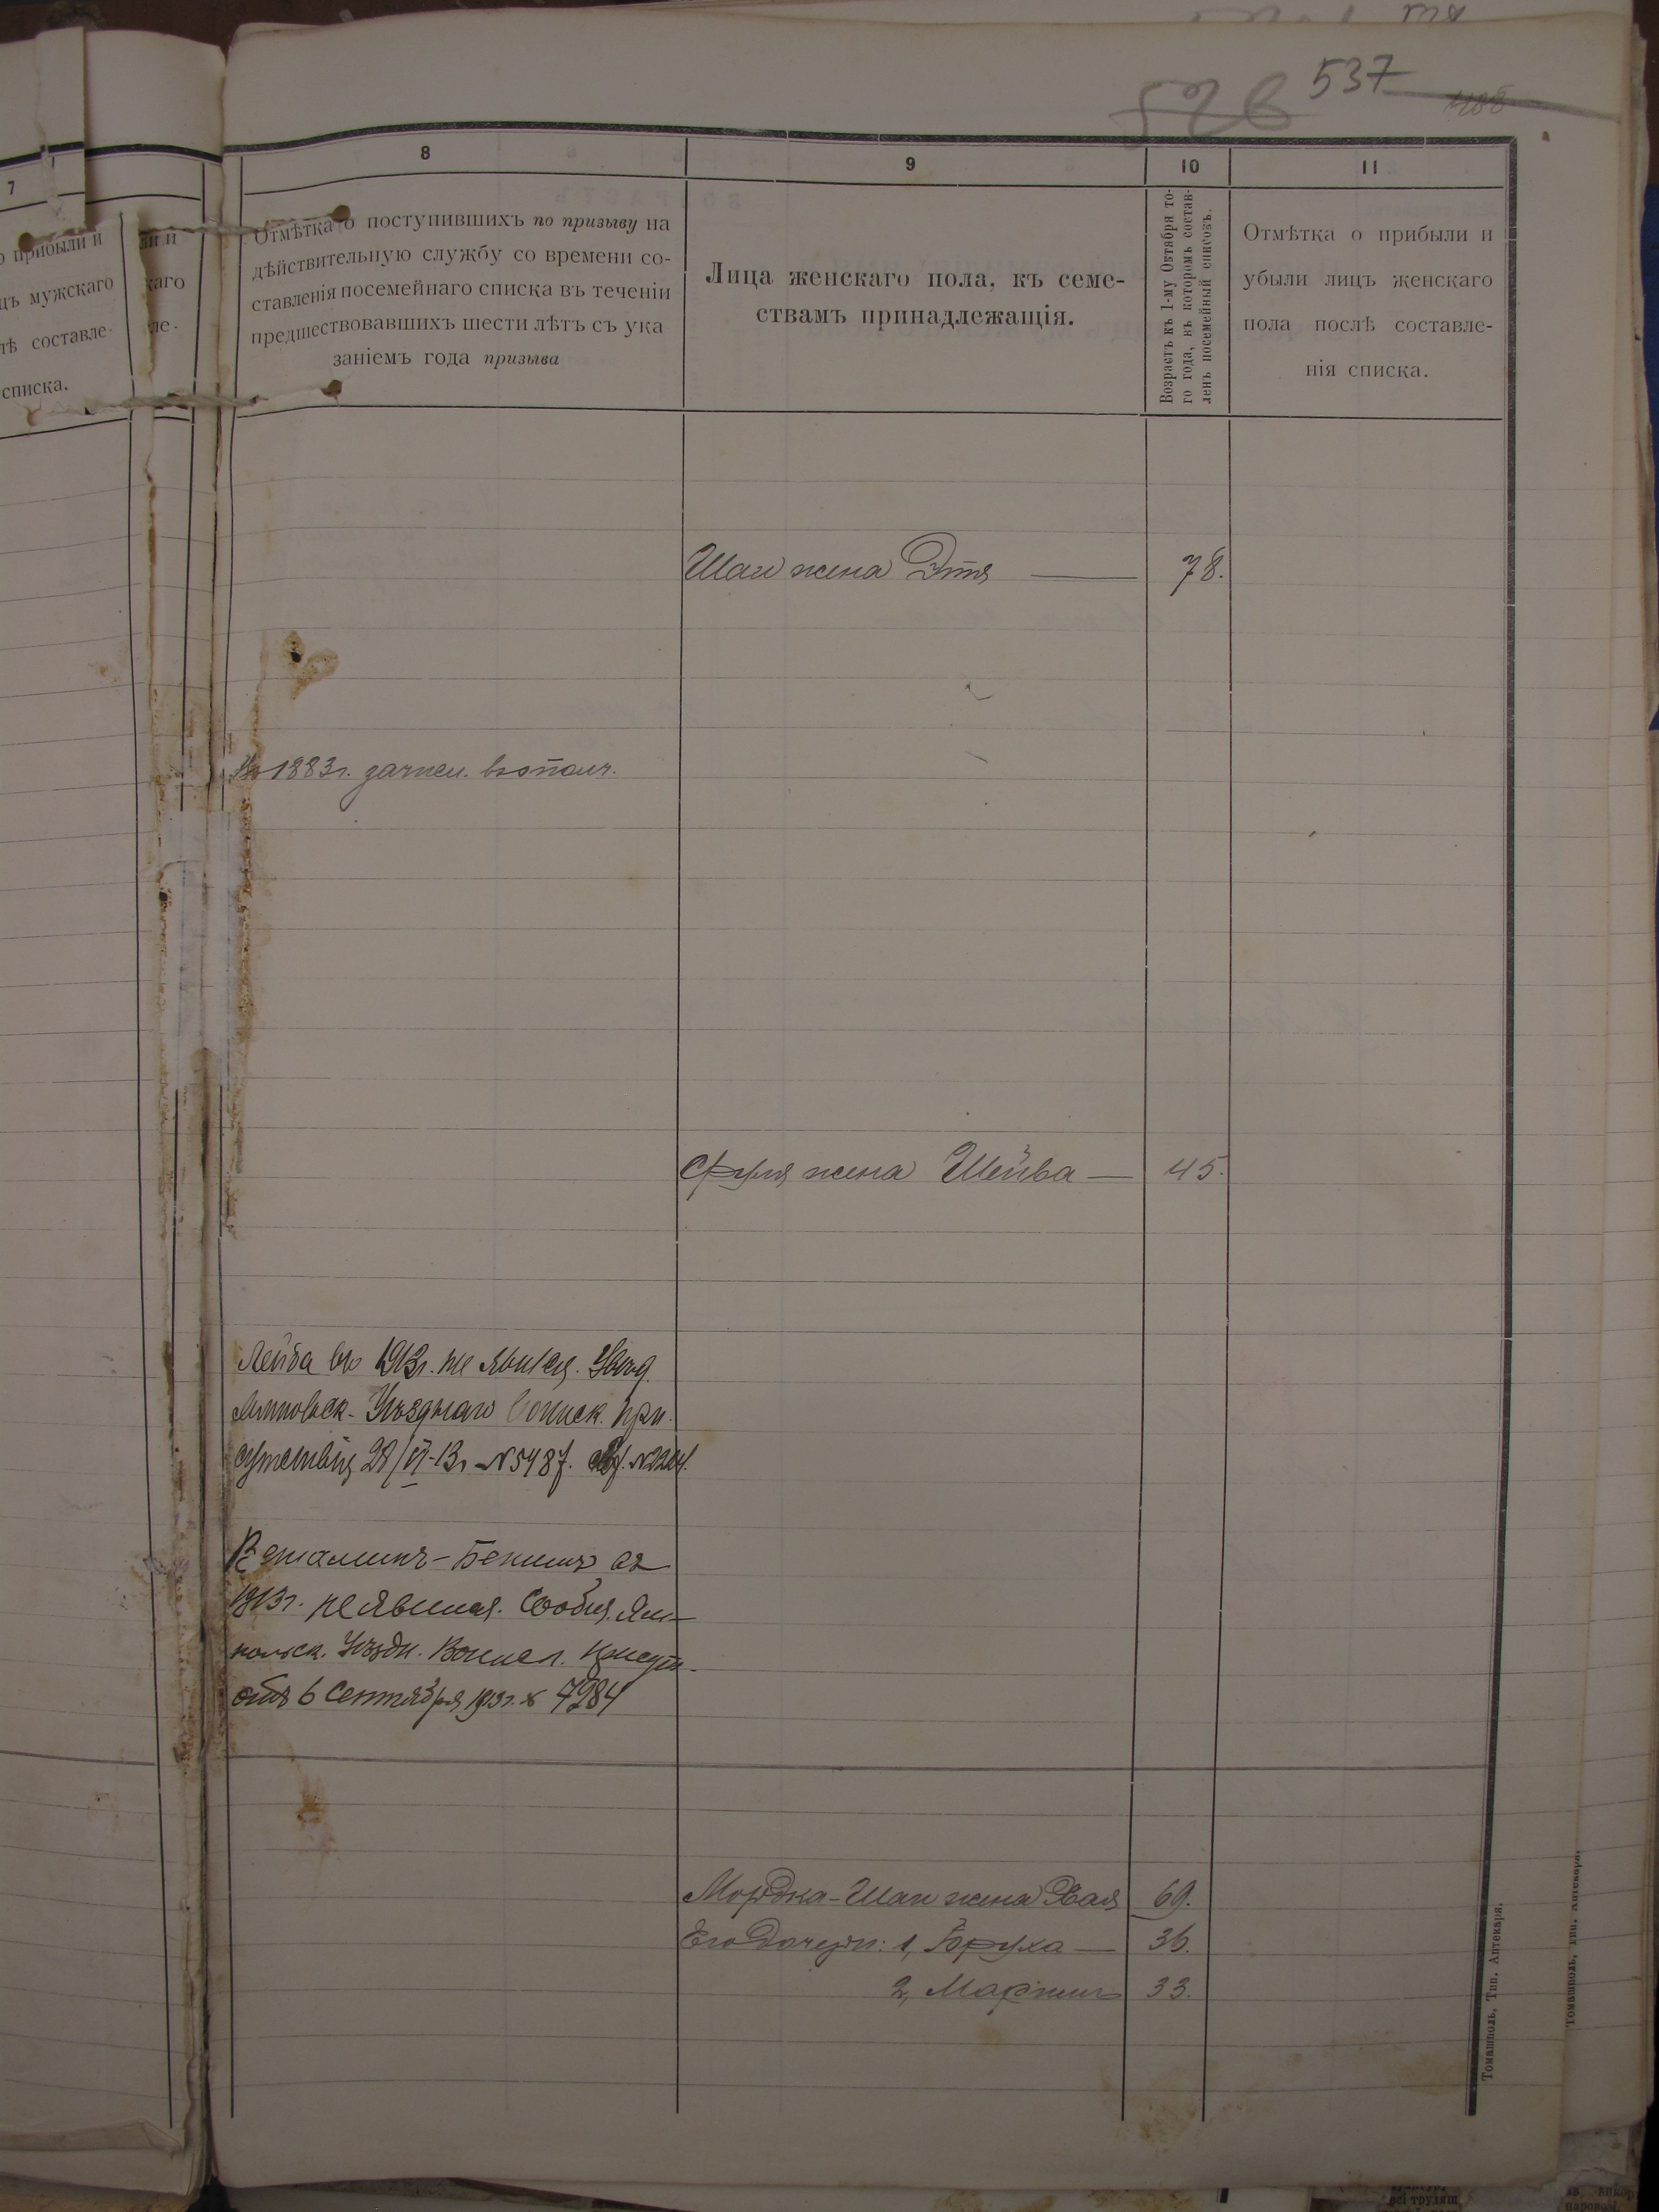 537
526
408
7
о прибыли и
цъ мужскаго
лѣ составле-
списка.
ли и
каго
ле-
8
Отмѣтка о поступившихъ по призыву на
дѣйствительную службу со времени со-
ставленія посемейнаго списка въ теченіи
предшествовавшихъ шести лѣтъ съ ука
заніемъ года призыва
9
Лица женскаго пола, къ семе-
ствамъ принадлежащія.
10
Возрастъ къ 1-му Октября то-
го года, къ которомъ состав-
ленъ посемейный списокъ.
11
Отмѣтка о прибыли и
убыли лицъ женскаго
пола послѣ составле-
нія списка.
Шаи жена Этя 78.
Въ 1883г. зачисл. въ ополч.
Сруля жена Шейва 45.
Лейба въ 1913г. не явился. Увѣд.
Ямпольск. Уѣзднаго Воинск. При-
сутствія 28/VI-13г. №5487.
Веніаминъ-Беніимъ въ
1913г. не явился. Сообщ. Ям-
польск. Уѣздн. Воинск. Присут.
отъ 6 Сентября 1913г. № 7984
Мордка-Шаи жена Хая 69.
Его дочери: 1, Бруха 36.
2, 33.
Томашполь, Тип. Аптекаря.
Томашполь, Тип. Аптекаря.